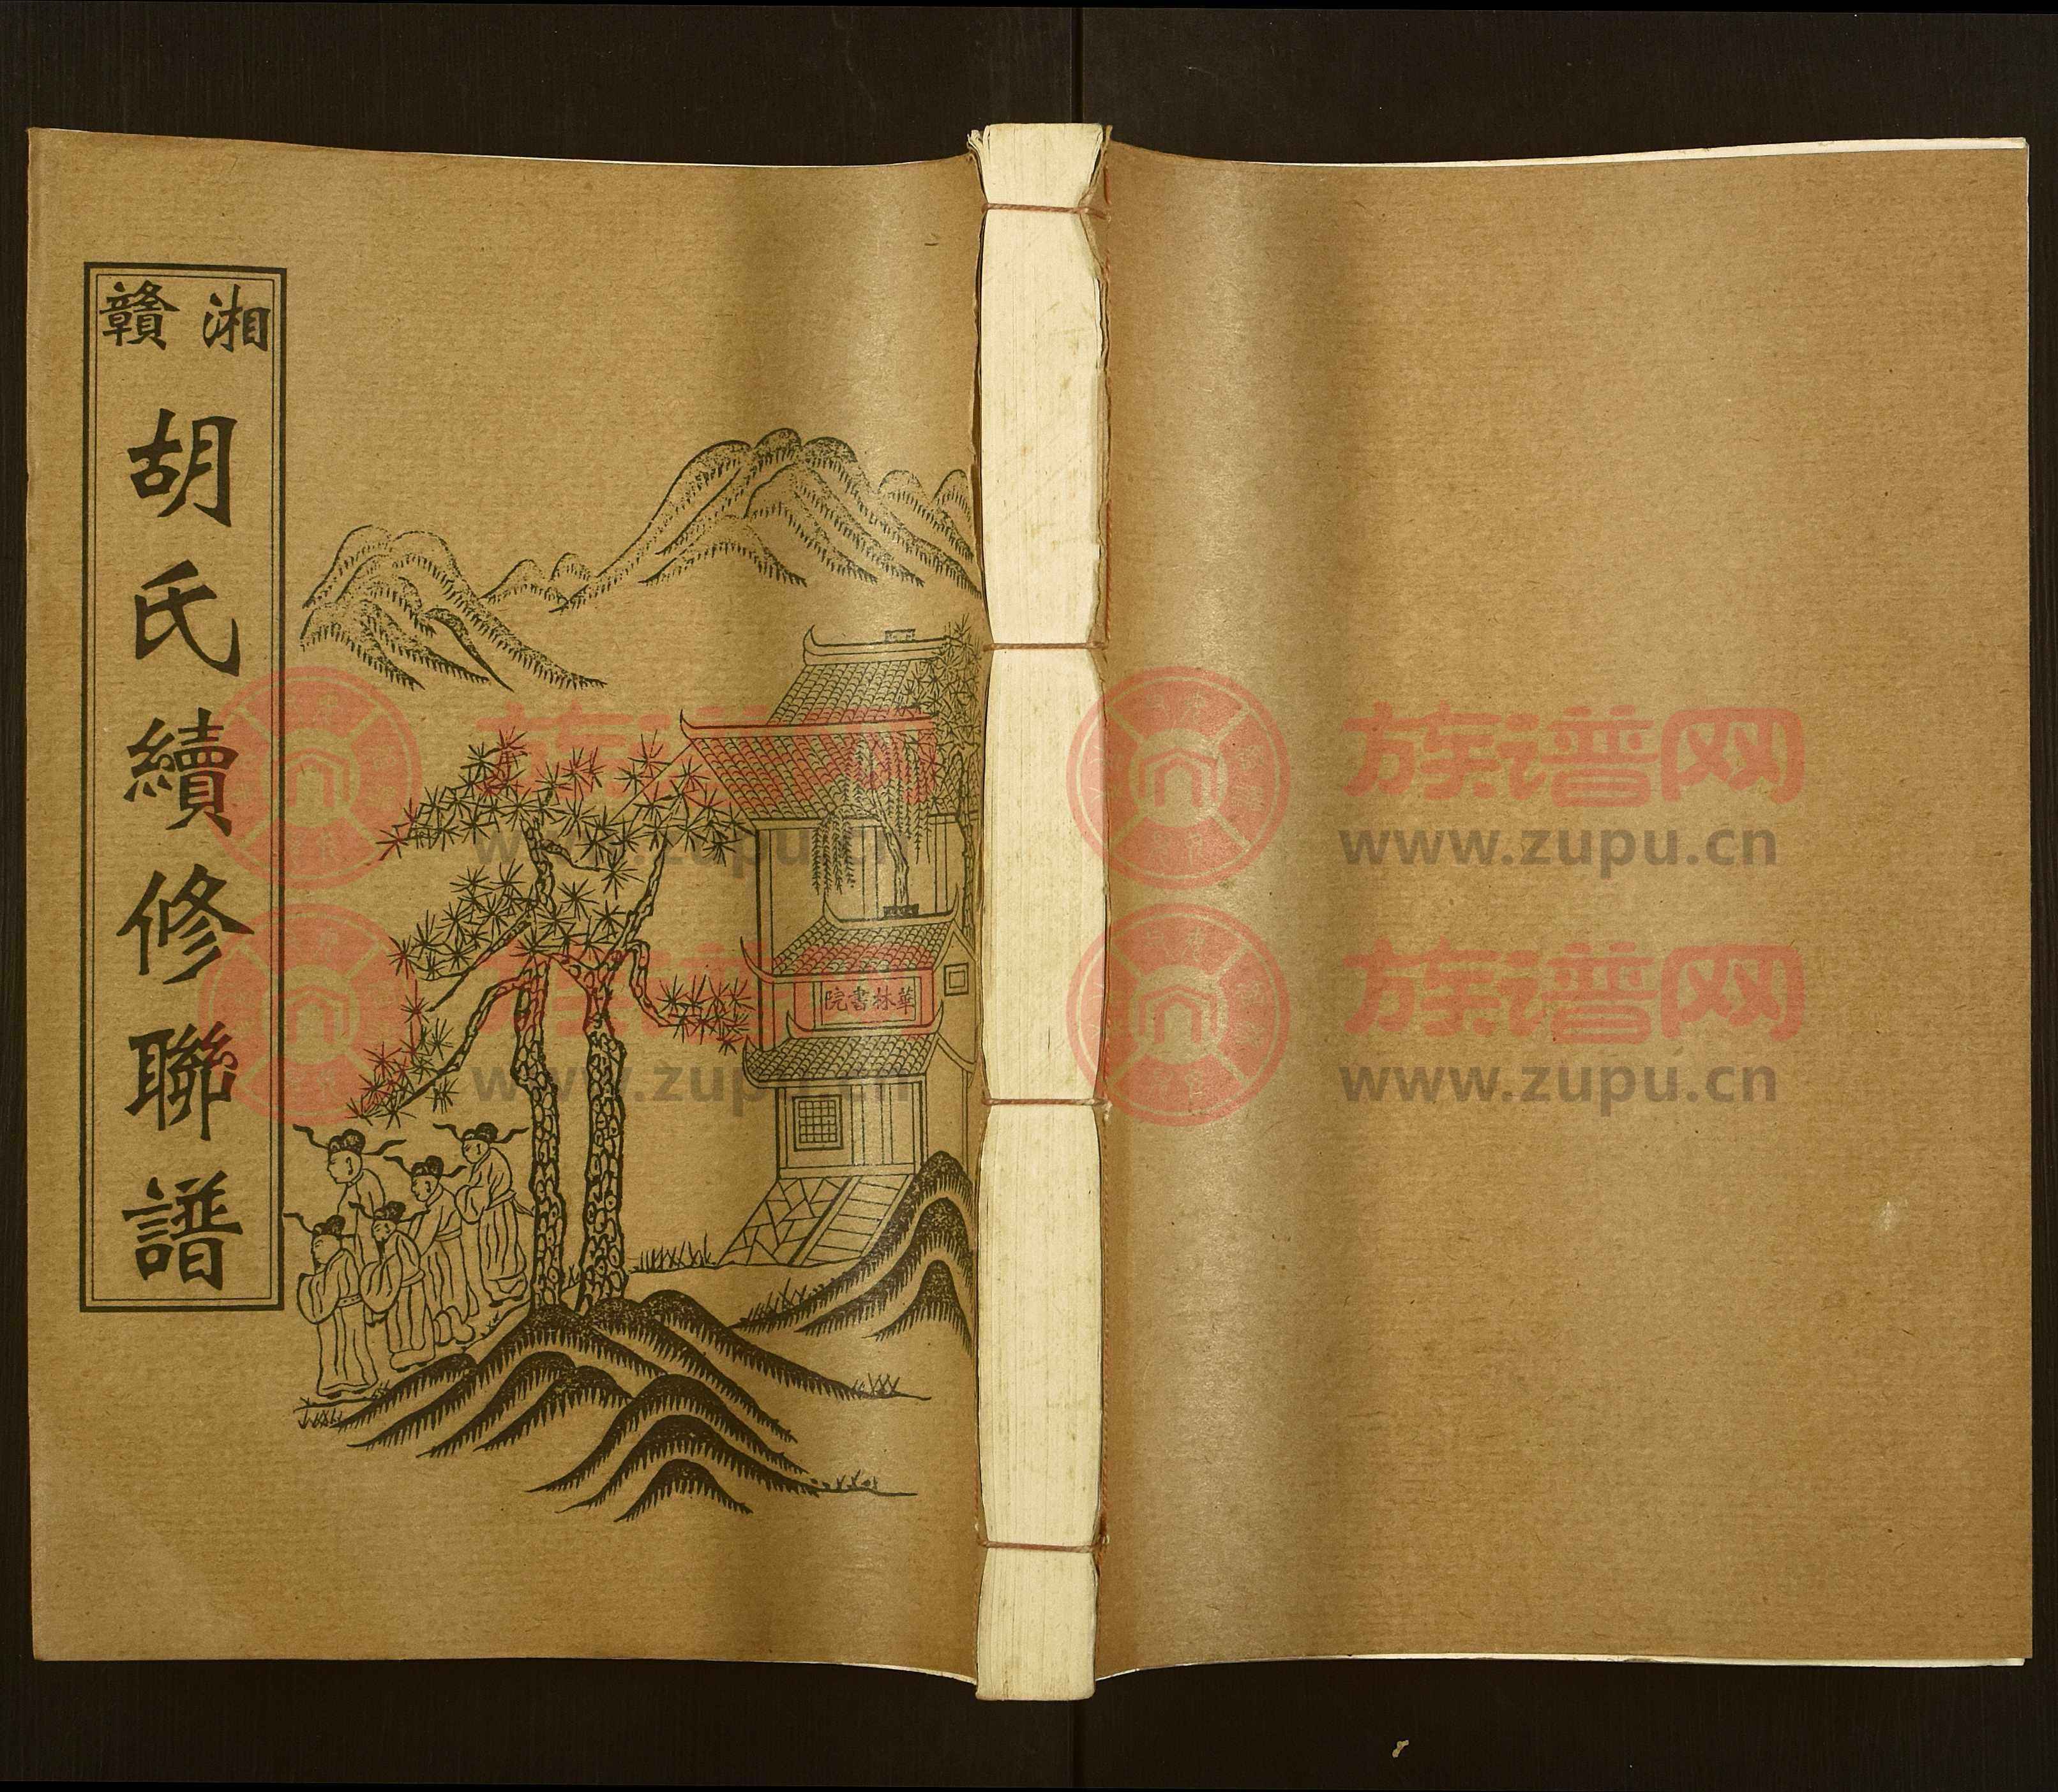 湘 贛
胡氏續修聯譜
華林書院
族谱网
www.zupu.cn
族谱网
www.zupu.cn
族谱网
www.zupu.cn
族谱网
www.zupu.cn